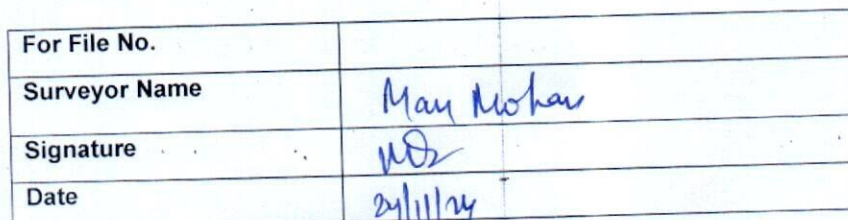 For File No.
Surveyor Name Man Mohan
Signature
Date 24/11/24